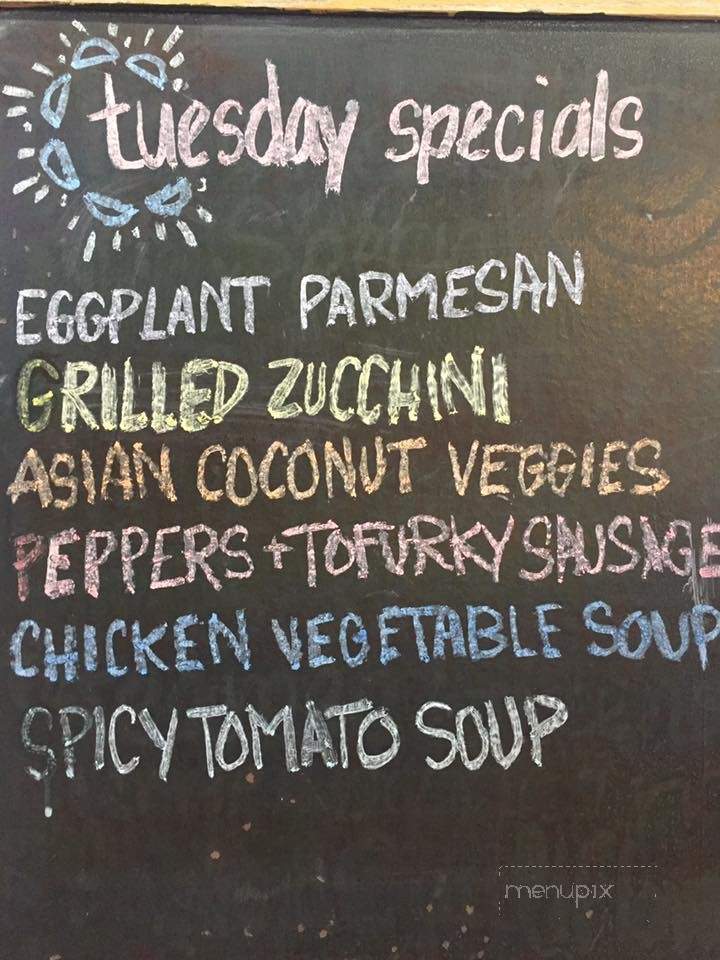 tuesday specials
EGGPLANT PARMESAN
GRILLED ZUCCHINI
ASIAN COCONUT VEGGIES
PEPPERS + TOFURKY SAUSAGE
CHICKEN VEGETABLE SOUP
SPICY TOMATO SOUP
menupix